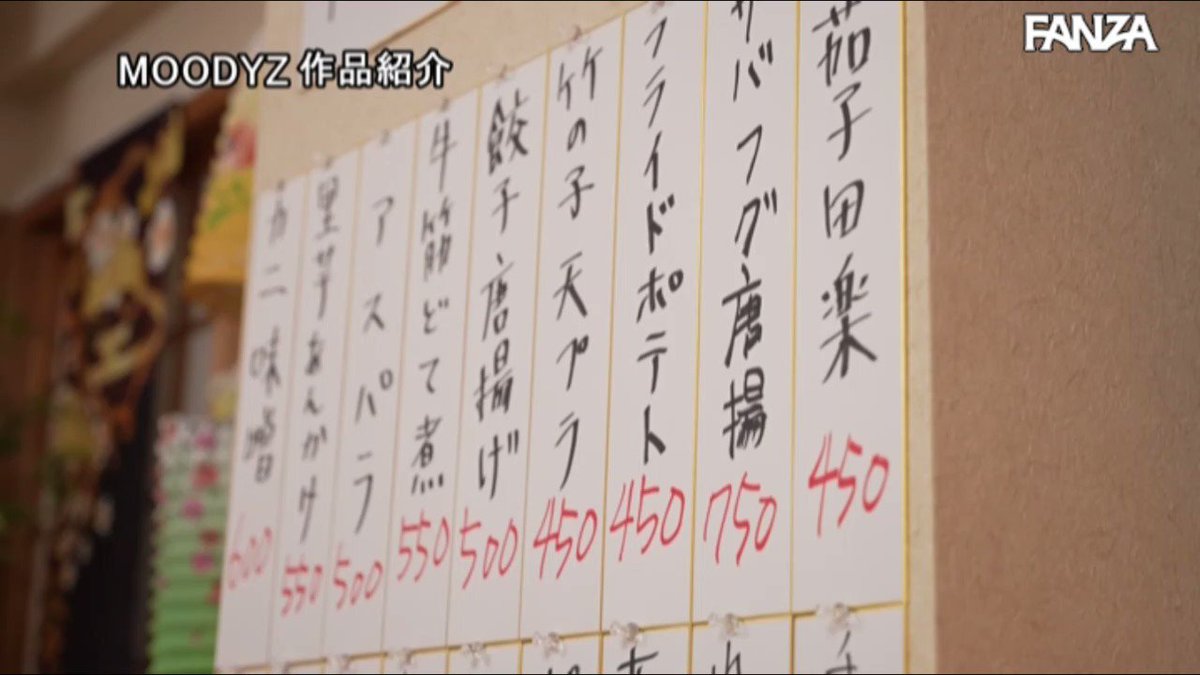 MOODYZ 作品紹介
FANZA
茄子田楽
450
サバフグ唐揚
750
フライドポテト
450
竹の子天プラ
450
餃子唐揚げ
500
牛筋どて煮
550
アスパラ
500
里芋あんかけ
550
カニ味噌
600